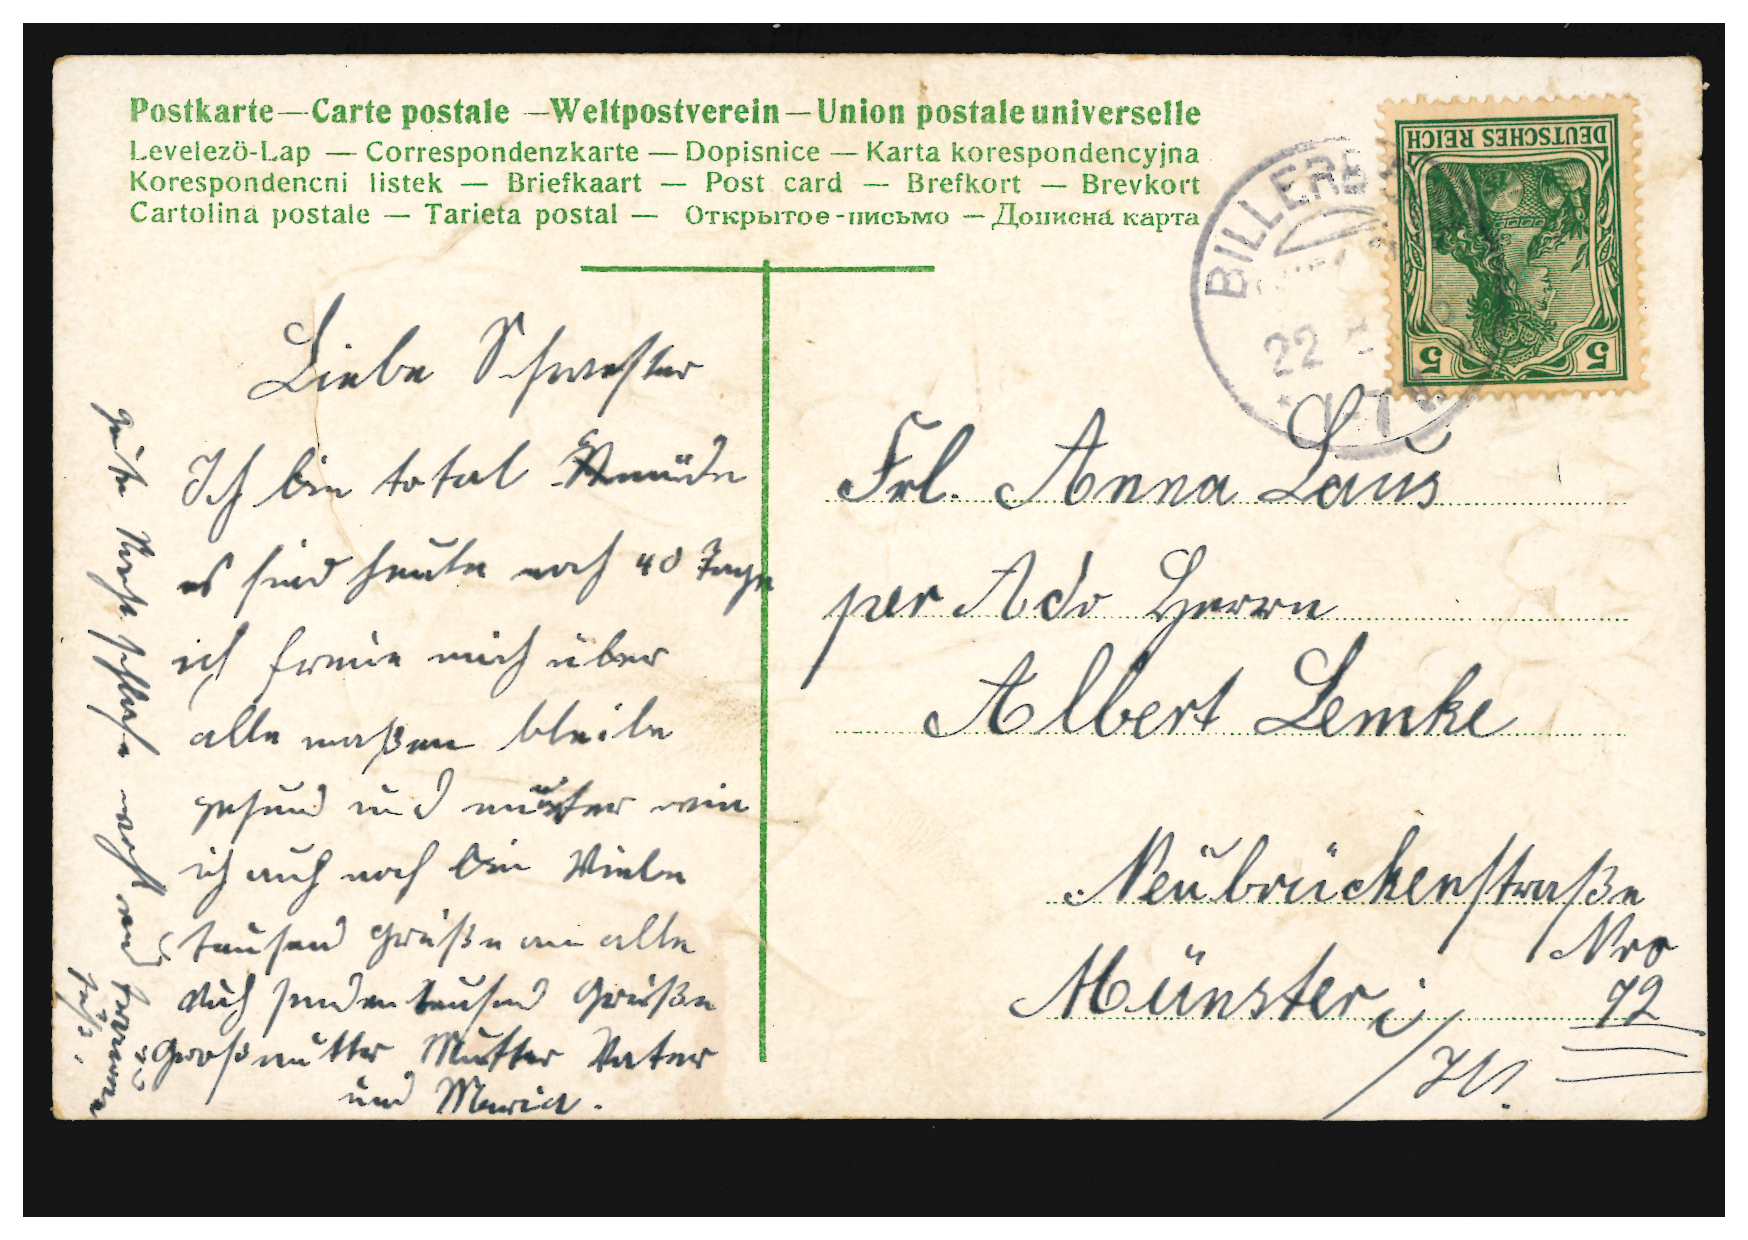 Postkarte — Carte postale — Weltpostverein — Union postale universelle
Levelezö-Lap — Correspondenzkarte — Dopisnice — Karta korespondencyjna
Korespondencni listek — Briefkaart — Post card — Brefkort — Brevkort
Cartolina postale — Tarieta postal — Открытое-письмо — Дописна карта
DEUTSCHES REICH
5 5
BILLERB
22
Liebe Schwester
Ich bin total müde
es sind heute noch 40 Tage
ich freue mich über
alle maßen bleibe
gesund und munter wie
ich auch noch bin Viele
tausend Grüße an alle
auch senden tausend Grüße
Großmutter Mutter Vater
und Maria.
gute Nacht schlafe wohl und träume
süß.
Frl. Anna Laus
per Adr Herrn
Albert Lemke
Neubrückenstraße
Nro
Münster i/W.
72